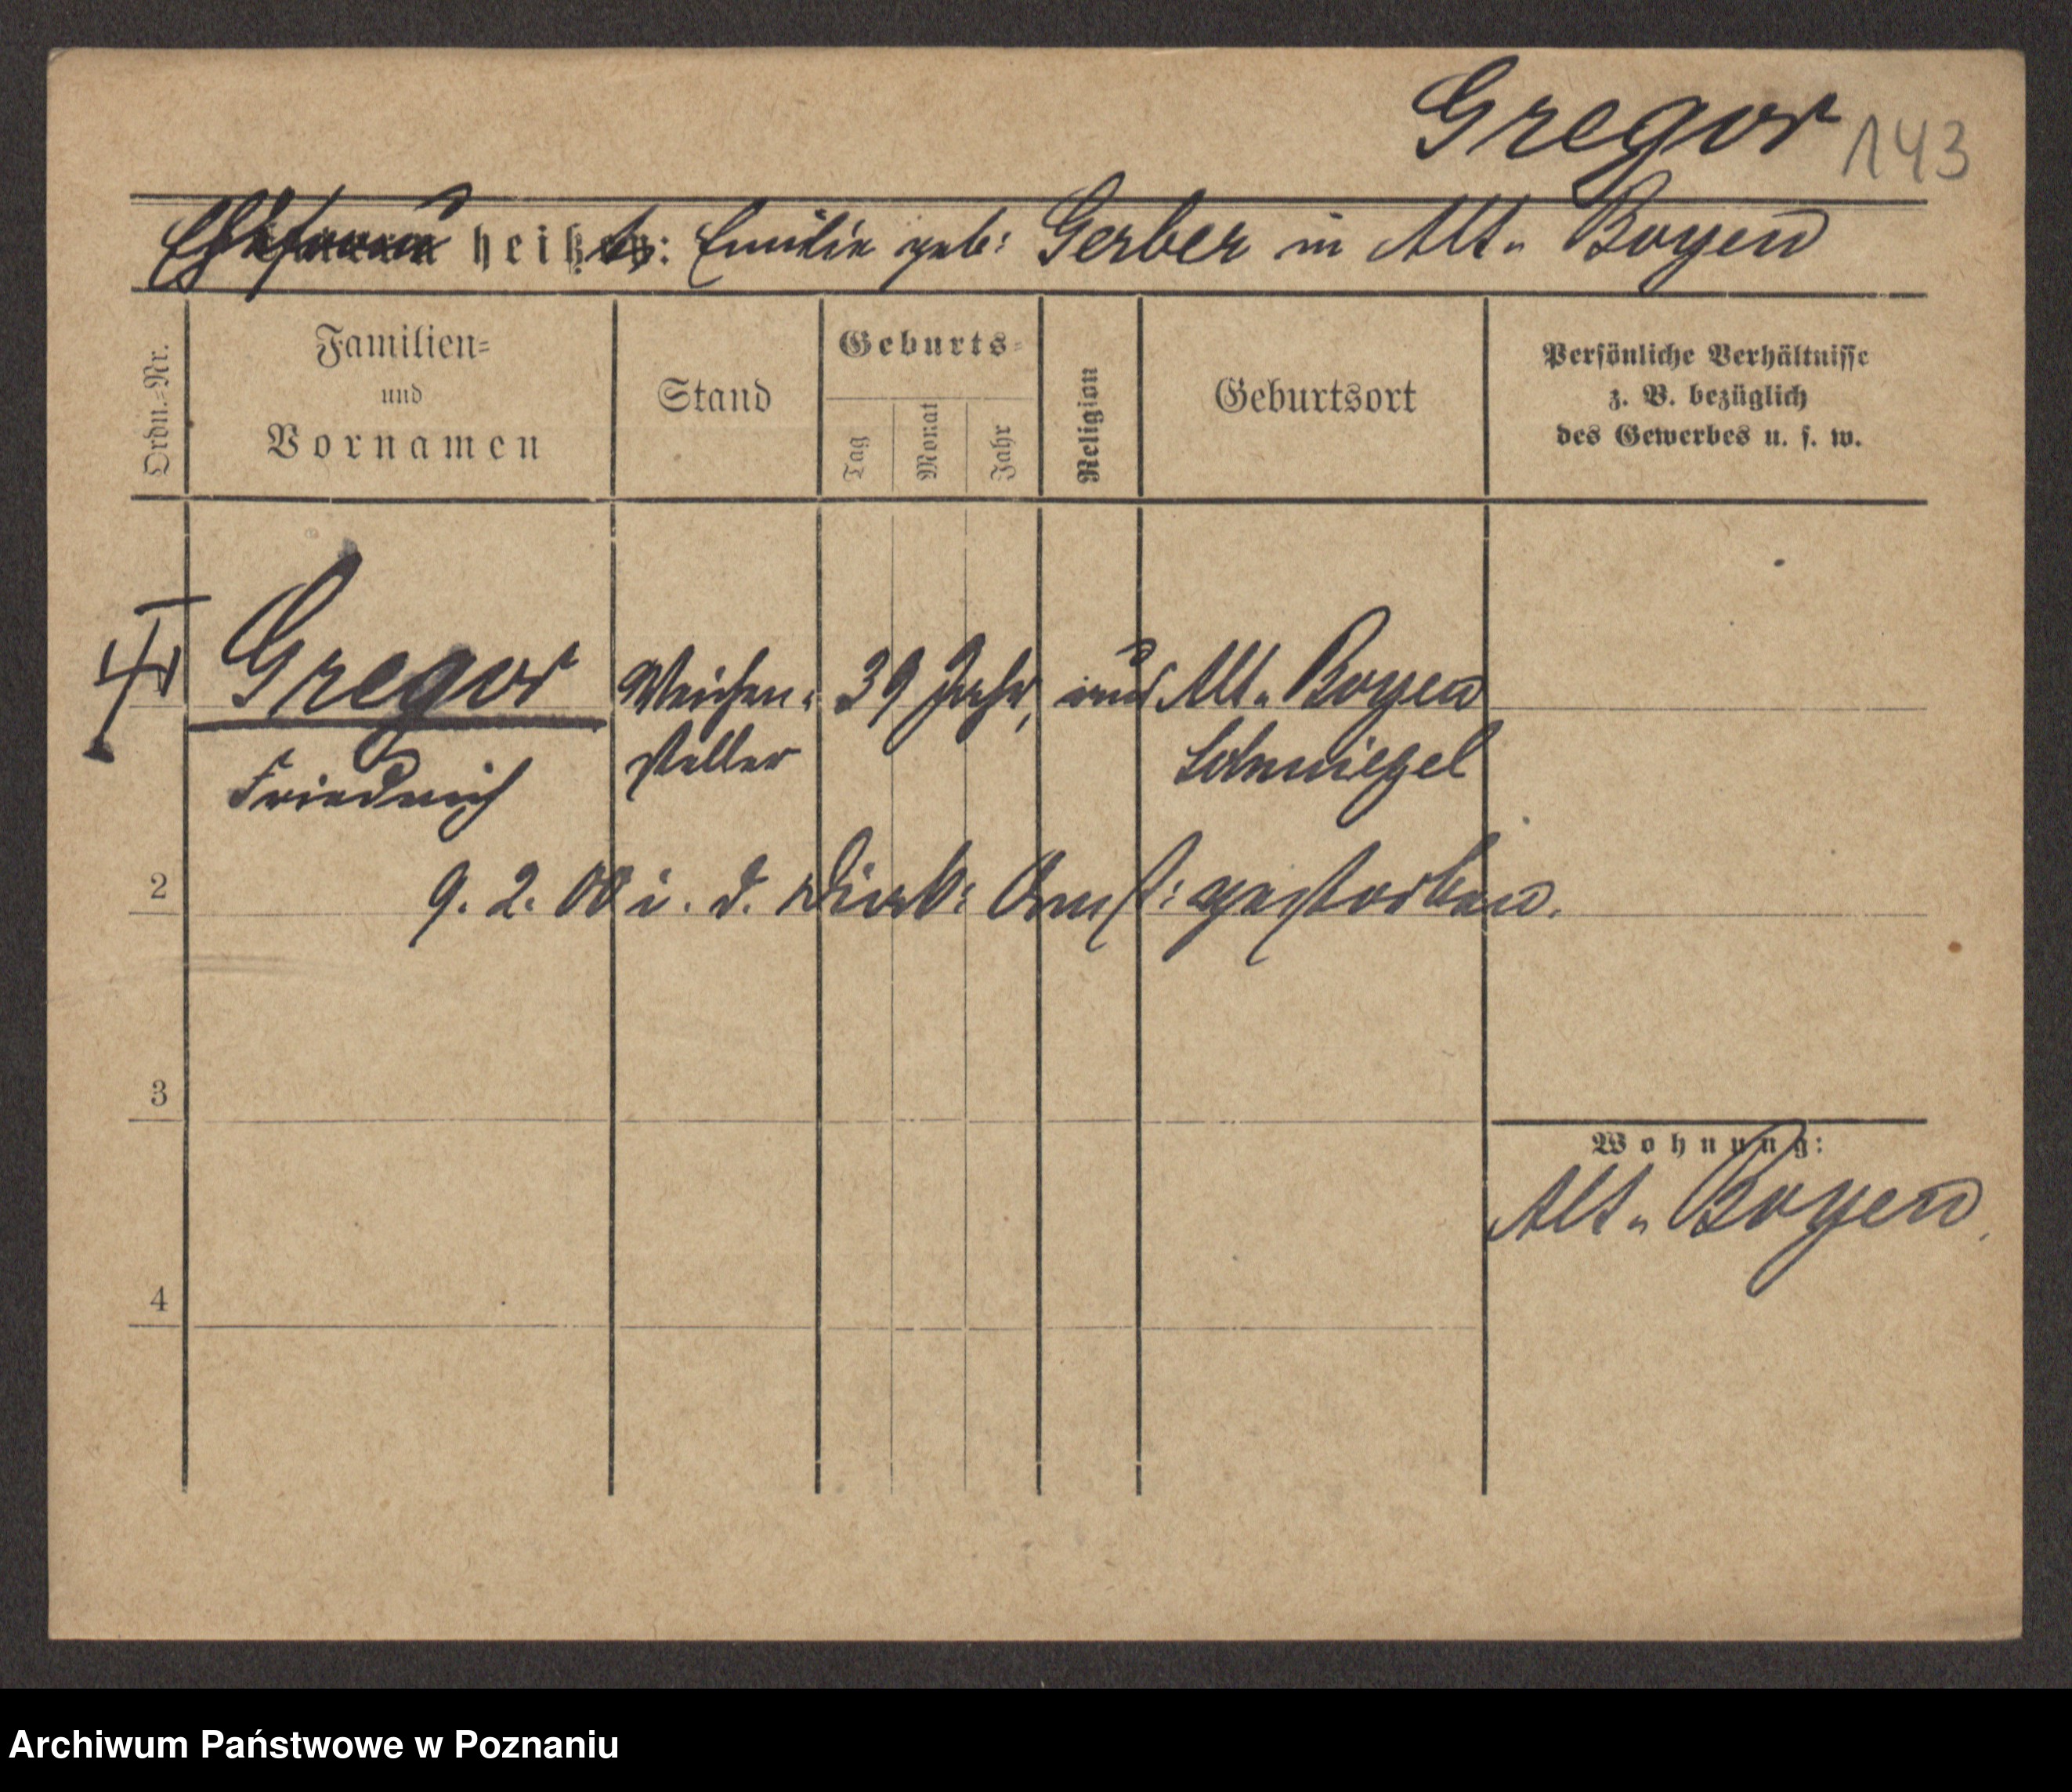 Gregor 143
Ehefrau heißt: Emilie geb: Gerber in Alt-Boyen
Ordn.=Nr.
Familien=
und
Vornamen
Stand
Geburts=
Tag
Monat
Jahr
Religion
Geburtsort
Persönliche Verhältnisse
z. B. bezüglich
des Gewerbes u. s. w.
Gregor Weichen- 39 Jahr, aus Alt-Boyen
Friedrich steller Schmiegel
2 9. 2. 00 i. d. Anst: gestorben.
3
Wohnung:
Alt-Boyen
4
Archiwum Państwowe w Poznaniu